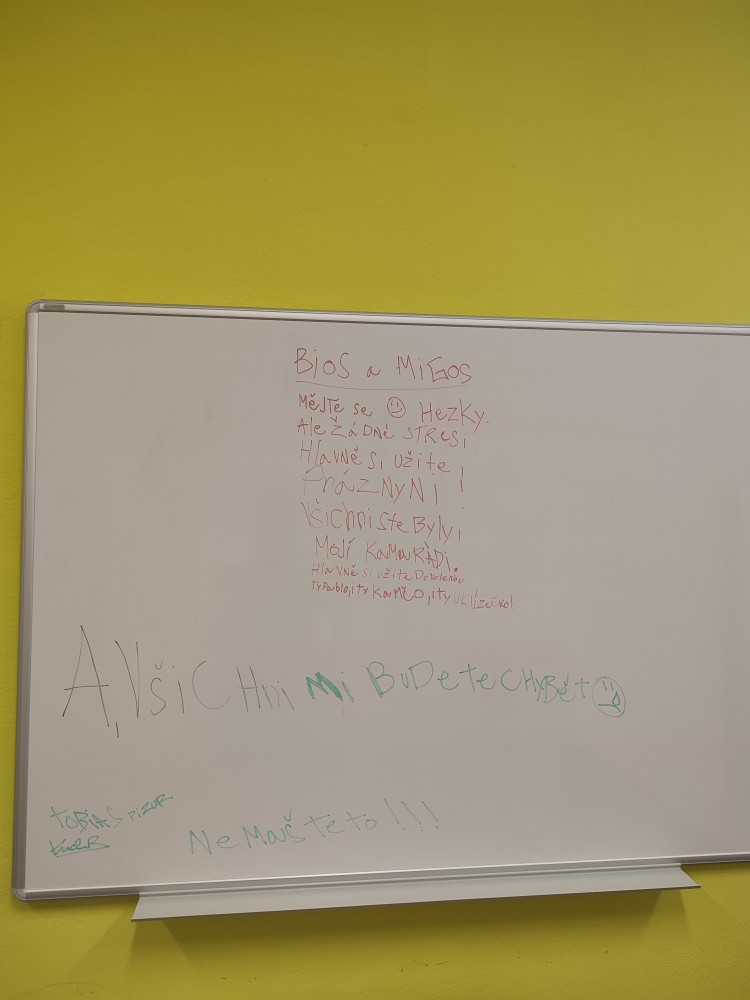 BioS a MiGoS
MěJTe se HezKy.
Ale ŽáDNé STReSi
HlavNě Si užite !
PráZNyNi !
VšiChni Ste Byly i
MoJí KaMaRÀDi.
HlavNě Si užite
ity KaMčo, ity
A, VšiCHni Mi BuDeTe CHyBět
toBiAS
NeMaŠ te to!!!